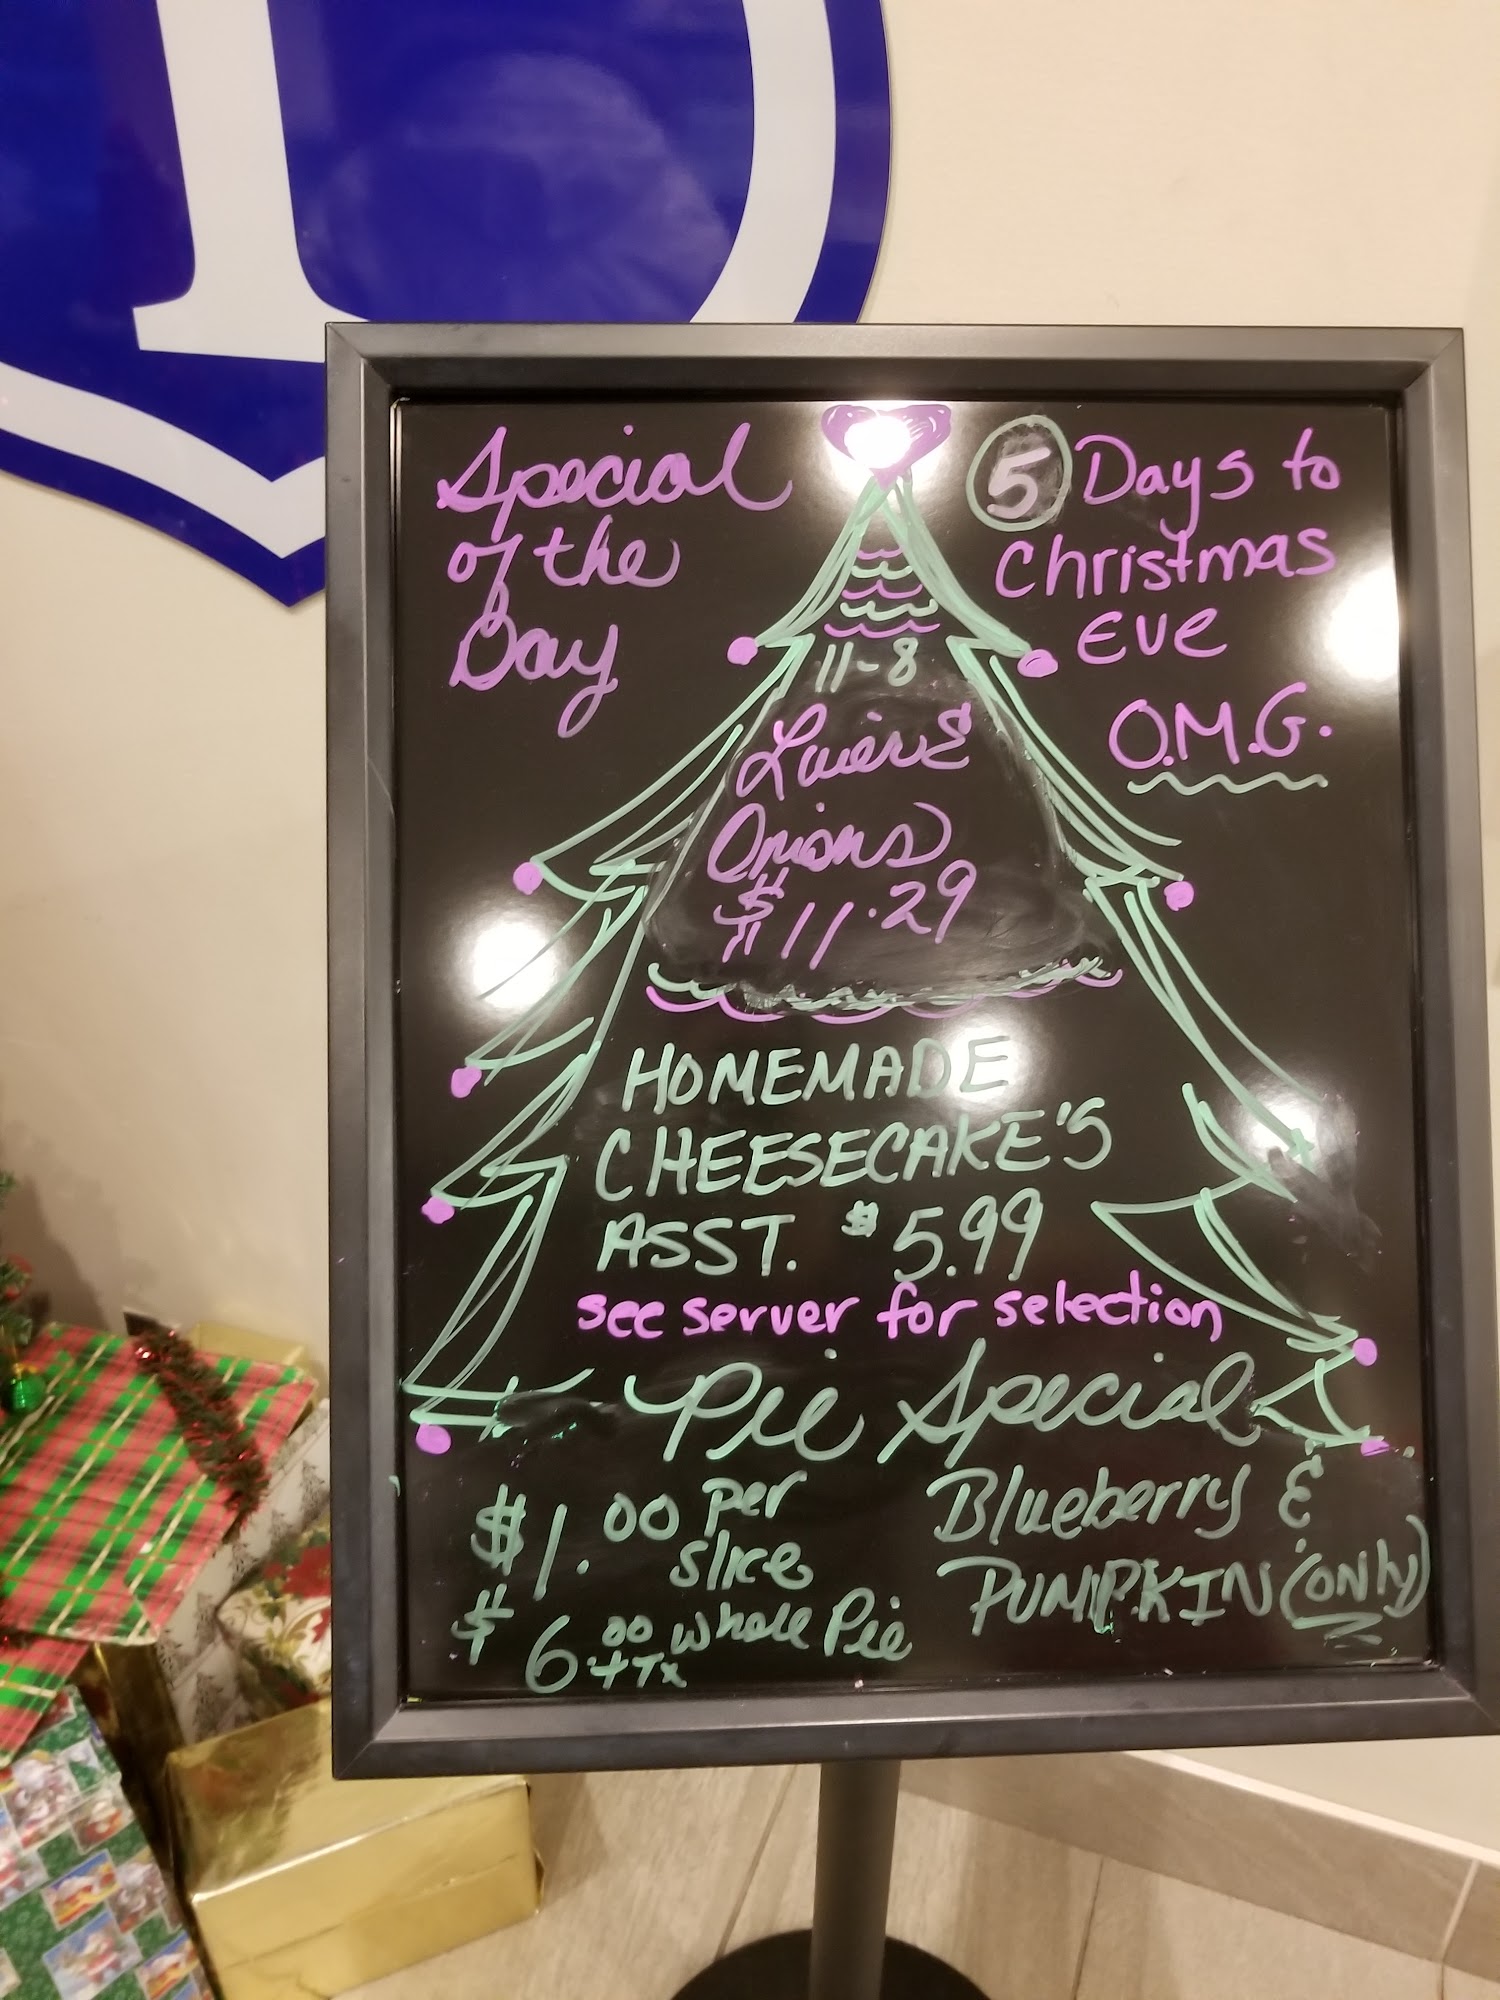 Special
of the
Day
5 Days to
Christmas
Eve
O.M.G.
11-8
Liver &
Onions
$11.29
HOMEMADE
CHEESECAKE'S
ASST. $5.99
see server for selection
Pie Special
$1.00 per
slice
$6.00 + Tx whole Pie
Blueberry &
PUMPKIN (ONly)